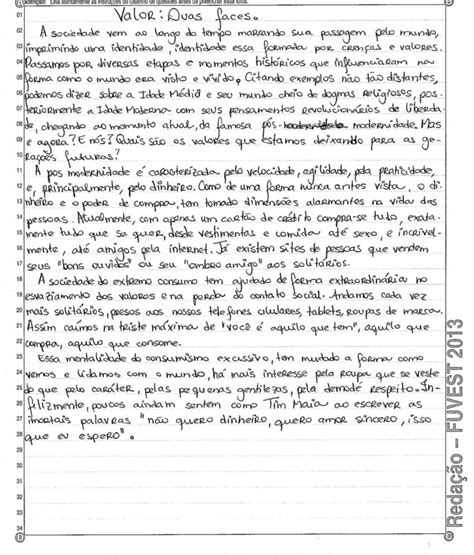 Atenção: Leia atentamente as instruções do caderno de questões antes de preencher essa folha.
Valor: Duas faces.
A sociedade vem ao longo do tempo marcando sua passagem pelo mundo,
imprimindo uma identidade, identidade essa formada por crenças e valores.
Passamos por diversas etapas e momentos históricos que influenciaram na
forma como o mundo era visto e vivido. Citando exemplos não tão distantes,
podemos dizer sobre a Idade Média e seu mundo cheio de dogmas religiosos, pos-
teriormente a Idade Moderna com seus pensamentos revolucionários de liberda-
de, chegando ao momento atual, da famosa pós- modernidade. Mas
e agora? E nós? Quais são os valores que estamos deixando para as ge-
rações futuras?
A pos modernidade é caracterizada pelo velocidade, agilidade, pela praticidade,
e, principalmente, pelo dinheiro. Como de uma forma nunca antes vista, o di-
nheiro e o poder de compra, tem tomado dimensões alarmantes na vida das
pessoas. Atualmente, com apenas um cartão de crédito compra-se tudo, exata-
mente tudo que se quer, desde vestimentas e comida até sexo, e incrivel-
mente, até amigos pela internet. Já existem sites de pessoas que vendem
seus "bons ouvidos" ou seu "ombro amigo" aos solitários.
A sociedade do extremo consumo tem ajudado de forma extraordinária no
esvaziamento dos valores e na perda do contato social. Andamos cada vez
mais solitários, presos aos nossos telefones celulares, tablets, roupas de marca.
Assim caímos na triste máxima de "você é aquilo que tem", aquilo que
compra, aquilo que consome.
Essa mentalidade do consumismo excessivo, tem mudado a forma como
vemos e lidamos com o mundo, há mais interesse pela roupa que se veste
do que pelo caráter, pelas pequenas gentilezas, pela démodé respeito. In-
felizmente, poucos ainda sentem como Tim Maia ao escrever as
imortais palavras "não quero dinheiro, quero amor sincero, isso
que eu espero".
Redação – FUVEST 2013